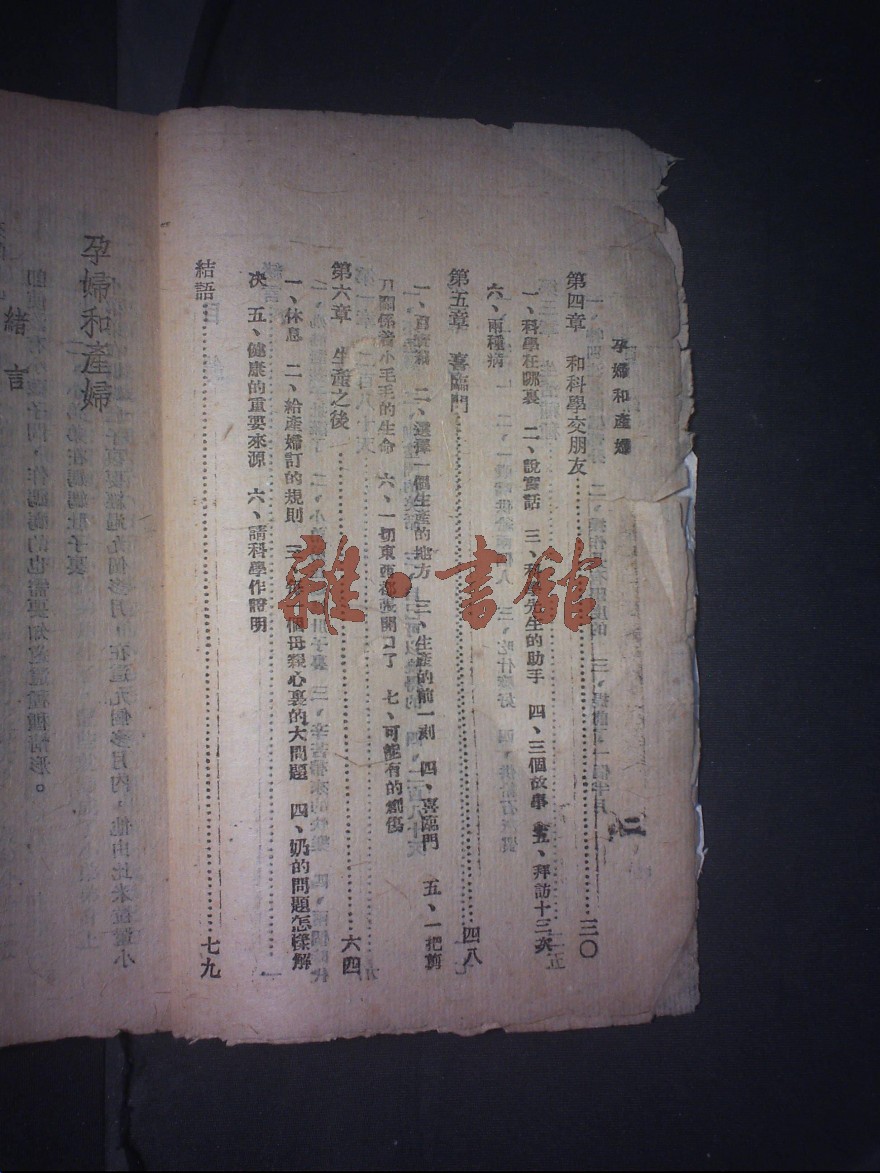 孕婦和產婦
二
第四章　和科學交朋友……三〇
一、科學在哪裏　二、說實話　三、科學先生的助手　四、三個故事　五、拜訪十三次
六、兩種病
第五章　喜臨門……四八
二、選擇一個生產的地方　三、生產的前一刻　四、喜臨門　五、一把剪
刀關係着小毛毛的生命　六、一切東西都張開口了　七、可能有的創傷
第六章　生產之後……六四
一、休息　二、給產婦訂的規則　三、每一個母親心裏的大問題　四、奶的問題怎樣解
决　五、健康的重要來源　六、請科學作證明
結語……七九
孕婦和產婦
緒言
雜·書館